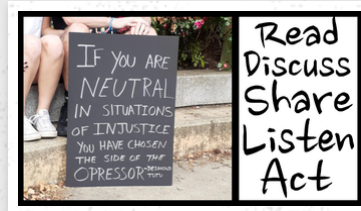 IF YOU ARE
NEUTRAL
IN SITUATIONS
OF INJUSTICE
YOU HAVE CHOSEN
THE SIDE OF THE
OPRESSOR -DESMOND
TUTU
Read
Discuss
Share
Listen
Act